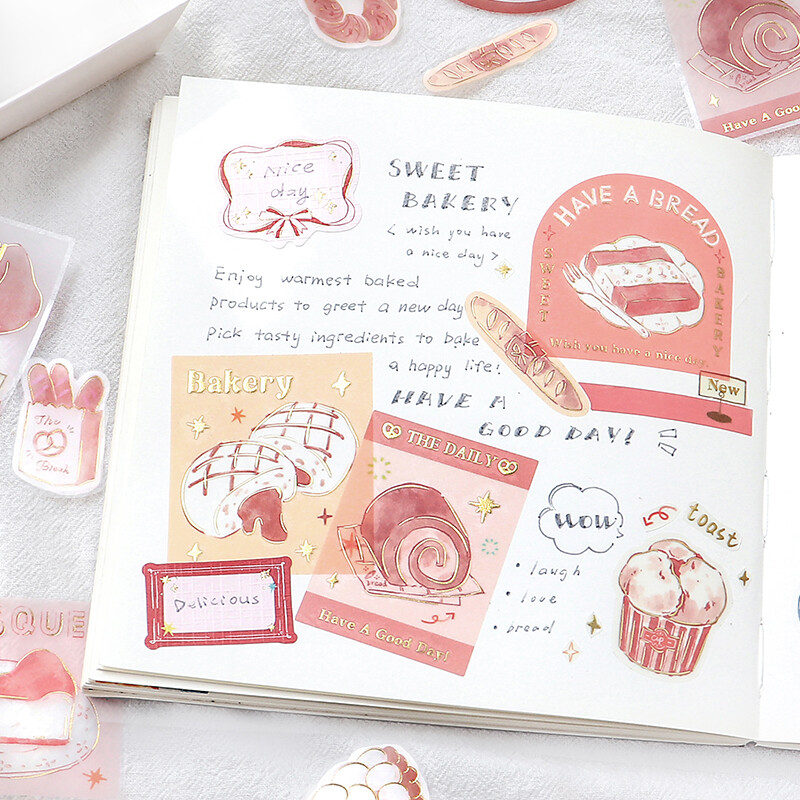 Have A Goo
Nice
day
SWEET
BAKERY
< wish you have
a nice day >
HAVE A BREAD
SWEET
BAKERY
Wish you have a nice day.
New
Enjoy warmest baked
products to greet a new day
Pick tasty ingredients to bake
a happy life!
HAVE A
GOOD DAY!
Bakery
THE DAILY
bread
Have A Good Day!
Delicious
WOW
• laugh
• love
• bread
toast
The
Break
SQUE